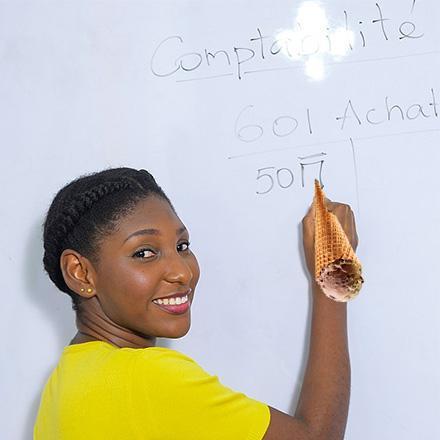 Comptabilité
601 Achat
50